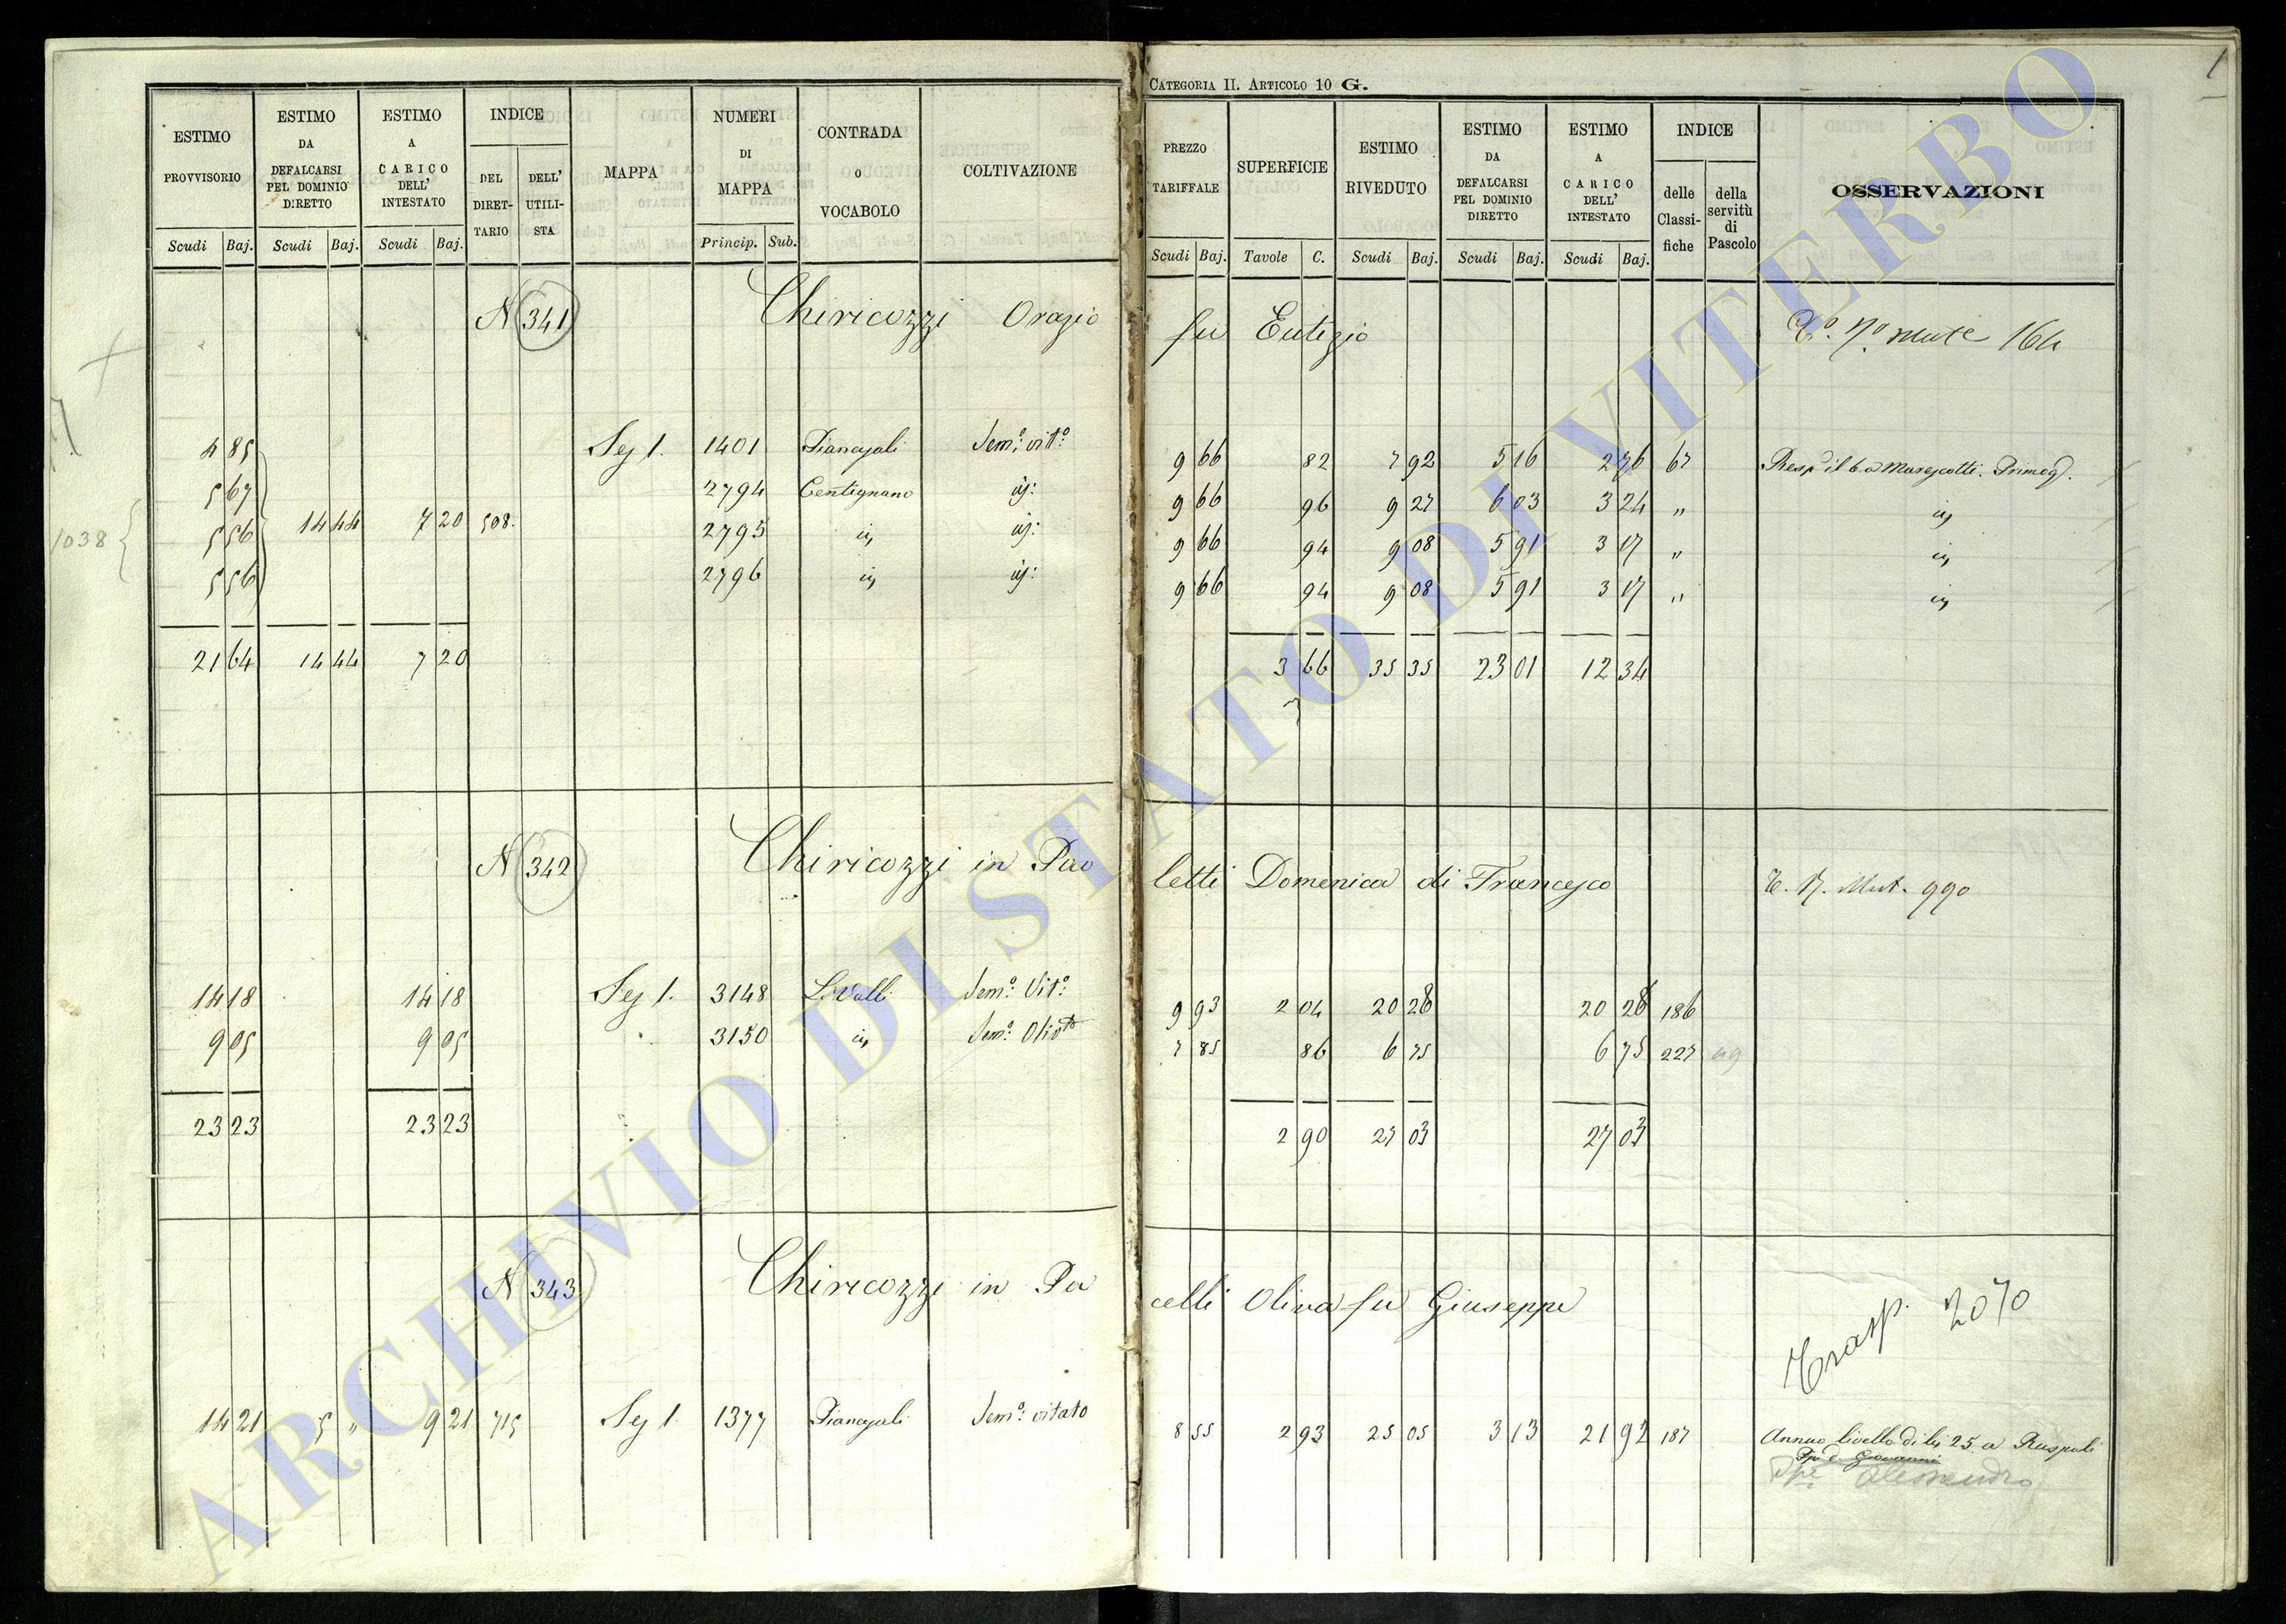 Categoria II. Articolo 10 G.
1
ESTIMO PROVVISORIO
ESTIMO DA DEFALCARSI PEL DOMINIO DIRETTO
ESTIMO A CARICO DELL' INTESTATO
INDICE
DEL DIRETTARIO
DELL' UTILISTA
MAPPA
NUMERI DI MAPPA
CONTRADA o VOCABOLO
COLTIVAZIONE
Scudi Baj. Scudi Baj. Scudi Baj. Princip. Sub.
PREZZO TARIFFALE
SUPERFICIE
ESTIMO RIVEDUTO
ESTIMO DA DEFALCARSI PEL DOMINIO DIRETTO
ESTIMO A CARICO DELL' INTESTATO
INDICE
delle Classifiche
della servitù di Pascolo
OSSERVAZIONI
Scudi Baj. Tavole C. Scudi Baj. Scudi Baj. Scudi Baj.
N 341 Chiricozzi Orazio fu Eutizio
164
4 85 1401 Sem: vit: 9 66 82 7 92 5 16 2 76 67
5 67 2794 Centignano 9 66 96 9 27 6 03 3 24 "
1038 5 56 14 44 7 20 508. 2795 9 66 94 9 08 5 91 3 17 "
5 56 2796 9 66 94 9 08 5 91 3 17 "
21 64 14 44 7 20 3 66 35 35 23 01 12 34
N 342 Chiricozzi in Paoletti Domenica di Francesco
Mut. 990
14 18 14 18 3148 Sem: Vit: 9 93 2 04 20 28 20 28 186
9 05 9 05 3150 7 85 86 6 75 6 75 227
23 23 23 23 2 90 27 03 27 03
N 343 Chiricozzi in Pacelli Oliva fu Giuseppe
Trasp. 2070
14 21 5 " 9 21 715 1377 Sem: vitato 8 55 2 93 25 05 3 13 21 92 187 Annuo livello di 25 a Ruspoli
Giovanni
Alessandro
ARCHIVIO DI STATO DI VITERBO